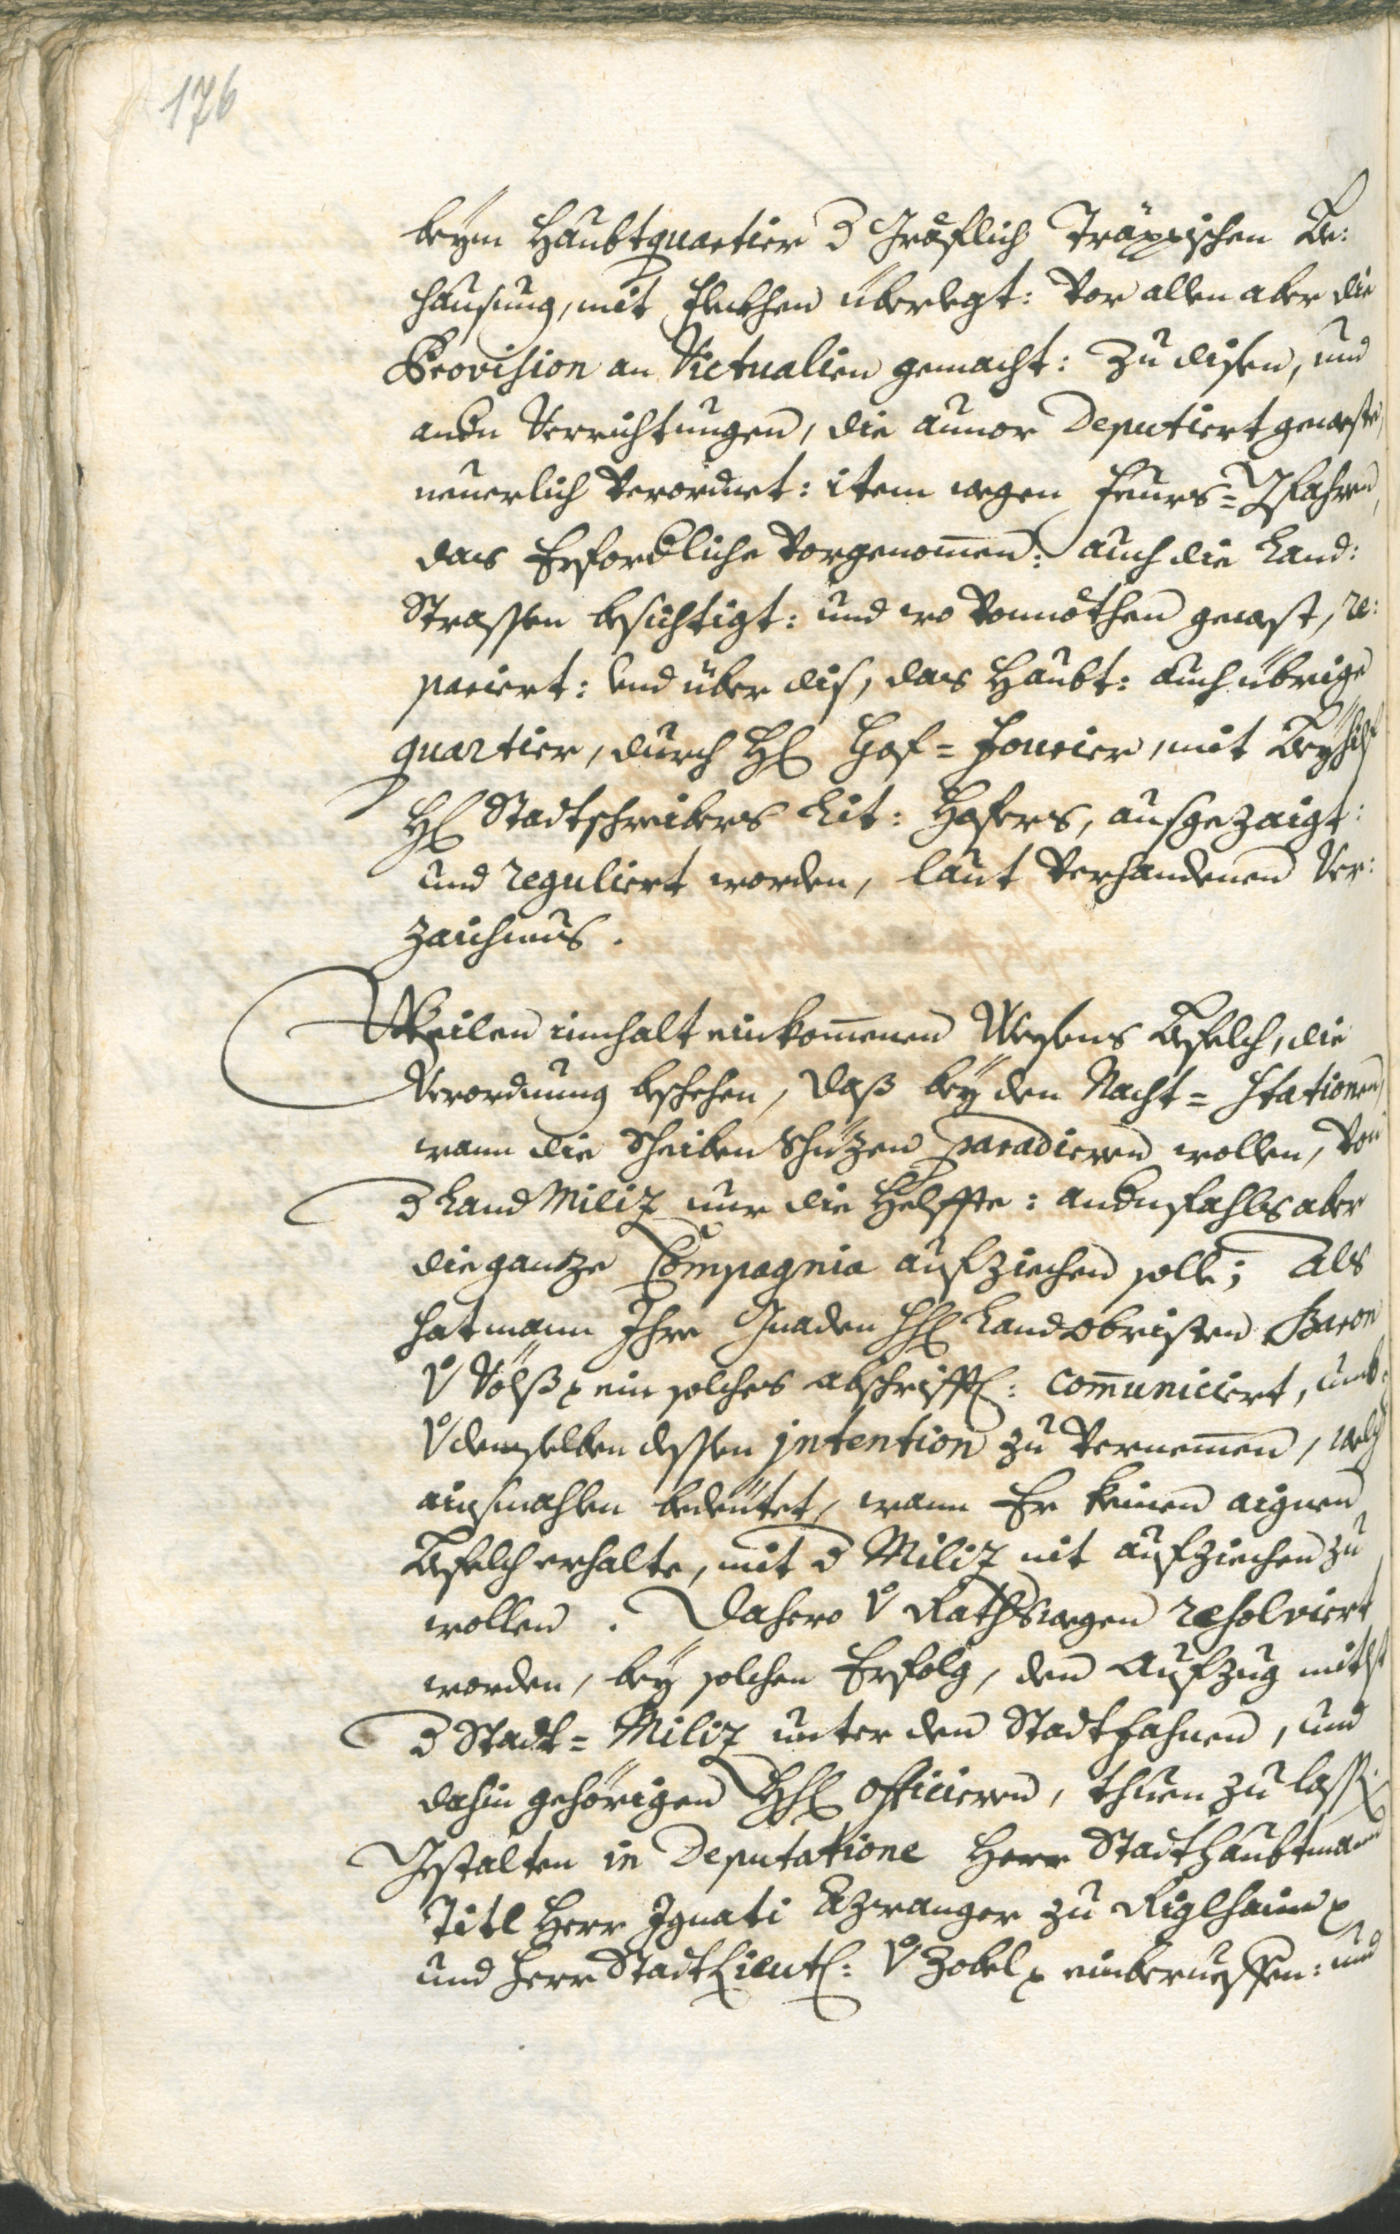 176
beÿm Haubtquartier d Gräflich Träppischen Be:
hausung, mit Fleckhen überlegt: Vor allen aber die
Provision an Victualien gemacht: zu disen, und
andn Verrichtungen, die annor Deputiert geweste,
neuerlich Verordnet: item wegen Feurs=Gfahren,
das Erfordliche Vorgenom̄en: auch die Land:
Strassen besichtigt: und wo Vonnöthen gewest, re:
pariert: Und über dis, das Haubt: auch übrige
quartier, durch H: Hof=Fourier, mit Beÿhilf
H: Stadtschreibers Lit: Hofers, ausgezaigt:
und reguliert worden, laut Verhandenen Ver:
zaichnus.
Weilen innhalt einkom̄enen Wesens Befelch, die
Verordnung beschehen, daß beÿ den Nacht=Stationen,
wann die Scheiben Schüzen paradieren wollen, von
d Land Miliz nur die Helffte: andnfahls aber
die gantze Compagnia aufziechen solle; Als
hat mann Ihre Gnaden H: Landobristen Baron
V Völß ein solches abschrifftl: com̄uniciert, umb
V demselben dessen intention zu Vernem̄en, welch
ainsmahlen bedeütet, wann Er keinen aignen
Befelch erhalte, mit d Miliz nit aufziechen zu
wollen. Dahero V Rathswegen resolviert
worden, beÿ solchen Erfolg, den Aufzug mitlst
d Stadt=Miliz unter den Stadtfahnen, und
dahin gehörigen HH: officieren, thuen zu lassen
Gestalten in Deputatione Herr Stadthaubtmann
Titl Herr Ignati Azwanger zu Riglhaim
und Herr Stadt Lieut: V Zobel einberueffen: und